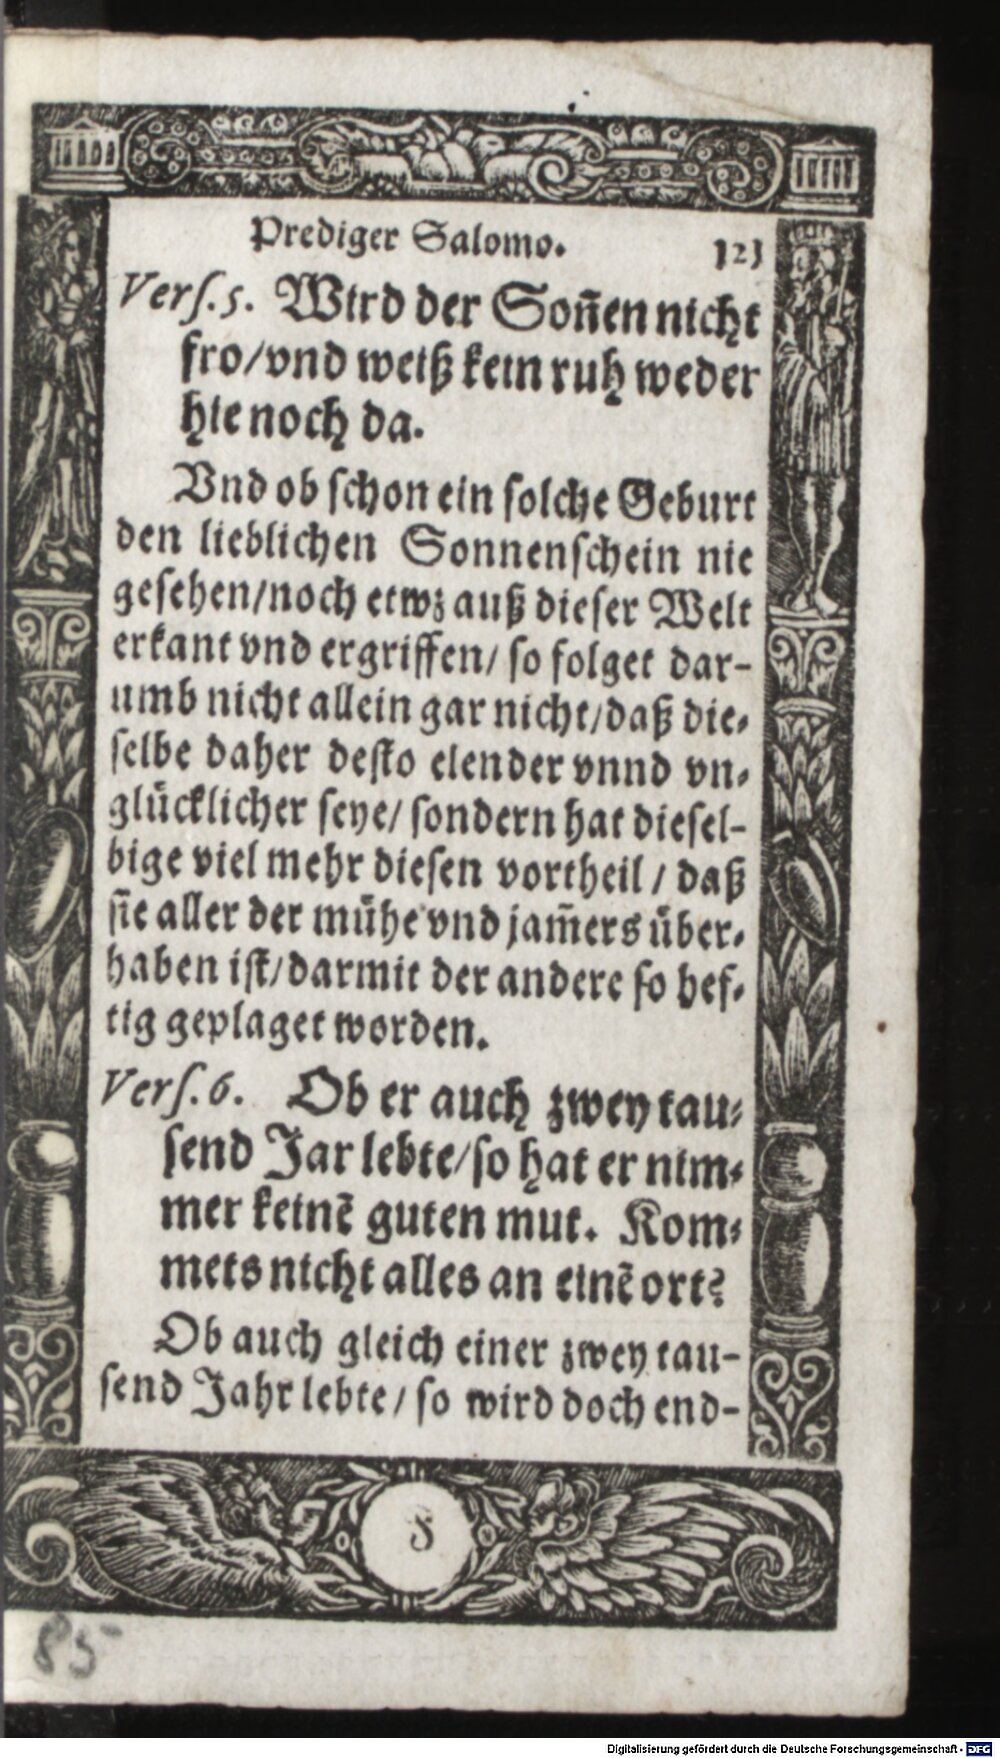 Prediger Salomo. 121
Vers. 5. Wird der Soñen nicht
fro/vnd weiß kein ruh weder
hie noch da.
Vnd ob schon ein solche Geburt
den lieblichen Sonnenschein nie
gesehen/noch etwz auß dieser Welt
erkant vnd ergriffen/ so folget dar-
umb nicht allein gar nicht/daß die-
selbe daher desto elender vnnd vn-
glücklicher seye/ sondern hat diesel-
bige viel mehr diesen vortheil / daß
sie aller der mühe vnd jam̃ers über-
haben ist/darmit der andere so hef-
tig geplaget worden.
Vers. 6. Ob er auch zwey tau-
send Jar lebte/so hat er nim-
mer keinẽ guten mut. Kom-
mets nicht alles an einẽ ort?
Ob auch gleich einer zwey tau-
send Jahr lebte / so wird doch end-
85
Digitalisierung gefördert durch die Deutsche Forschungsgemeinschaft - DFG